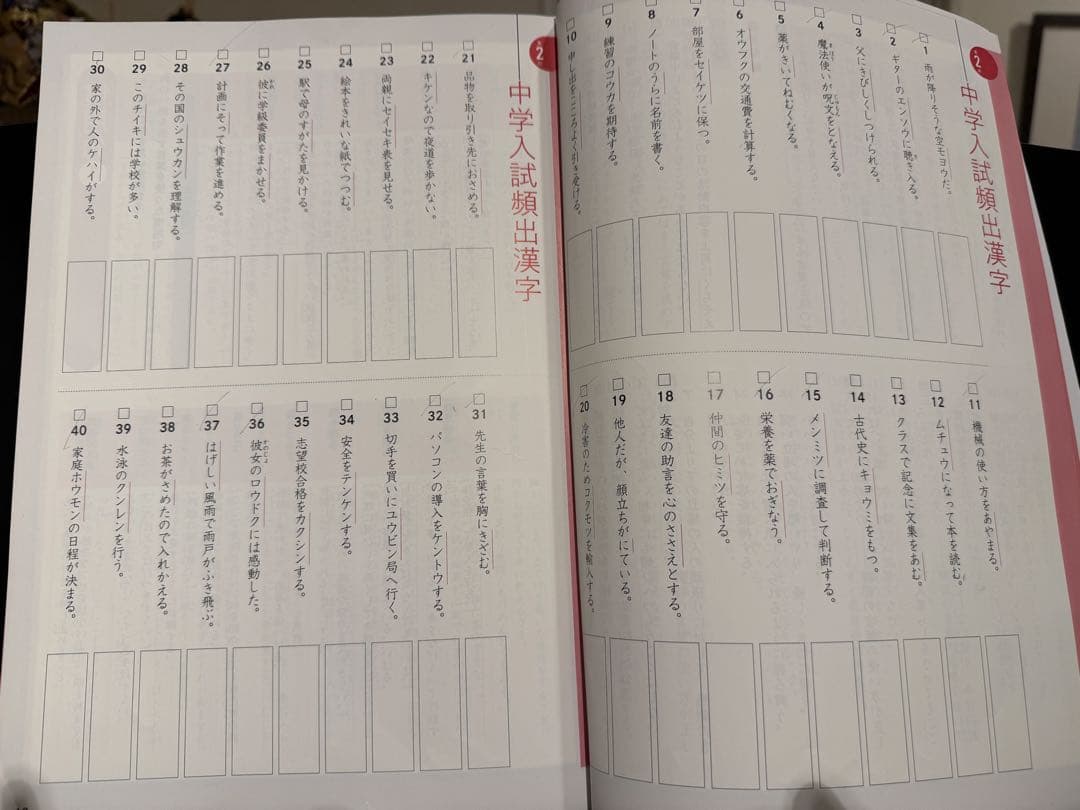 第2
中学入試頻出漢字
1 雨が降りそうな空モヨウだ。
2 ギターのエンソウに聴き入る。
3 父にきびしくしつけられる。
4 魔法使いが呪文をとなえる。
5 薬がきいてねむくなる。
6 オウフクの交通費を計算する。
7 部屋をセイケツに保つ。
8 ノートのうらに名前を書く。
9 練習のコウカを期待する。
10 申し出をこころよく引き受ける。
11 機械の使い方をあやまる。
12 ムチュウになって本を読む。
13 クラスで記念に文集をあむ。
14 古代史にキョウミをもつ。
15 メンミツに調査して判断する。
16 栄養を薬でおぎなう。
17 仲間のヒミツを守る。
18 友達の助言を心のささえとする。
19 他人だが、顔立ちがにている。
20 冷害のためコクモツを輸入する。
第2
中学入試頻出漢字
21 品物を取り引き先におさめる。
22 キケンなので夜道を歩かない。
23 両親にセイセキ表を見せる。
24 絵本をきれいな紙でつつむ。
25 駅で母のすがたを見かける。
26 彼に学級委員をまかせる。
27 計画にそって作業を進める。
28 その国のシュウカンを理解する。
29 このチイキには学校が多い。
30 家の外で人のケハイがする。
31 先生の言葉を胸にきざむ。
32 パソコンの導入をケントウする。
33 切手を買いにユウビン局へ行く。
34 安全をテンケンする。
35 志望校合格をカクシンする。
36 彼女のロウドクには感動した。
37 はげしい風雨で雨戸がふき飛ぶ。
38 お茶がさめたので入れかえる。
39 水泳のクンレンを行う。
40 家庭ホウモンの日程が決まる。